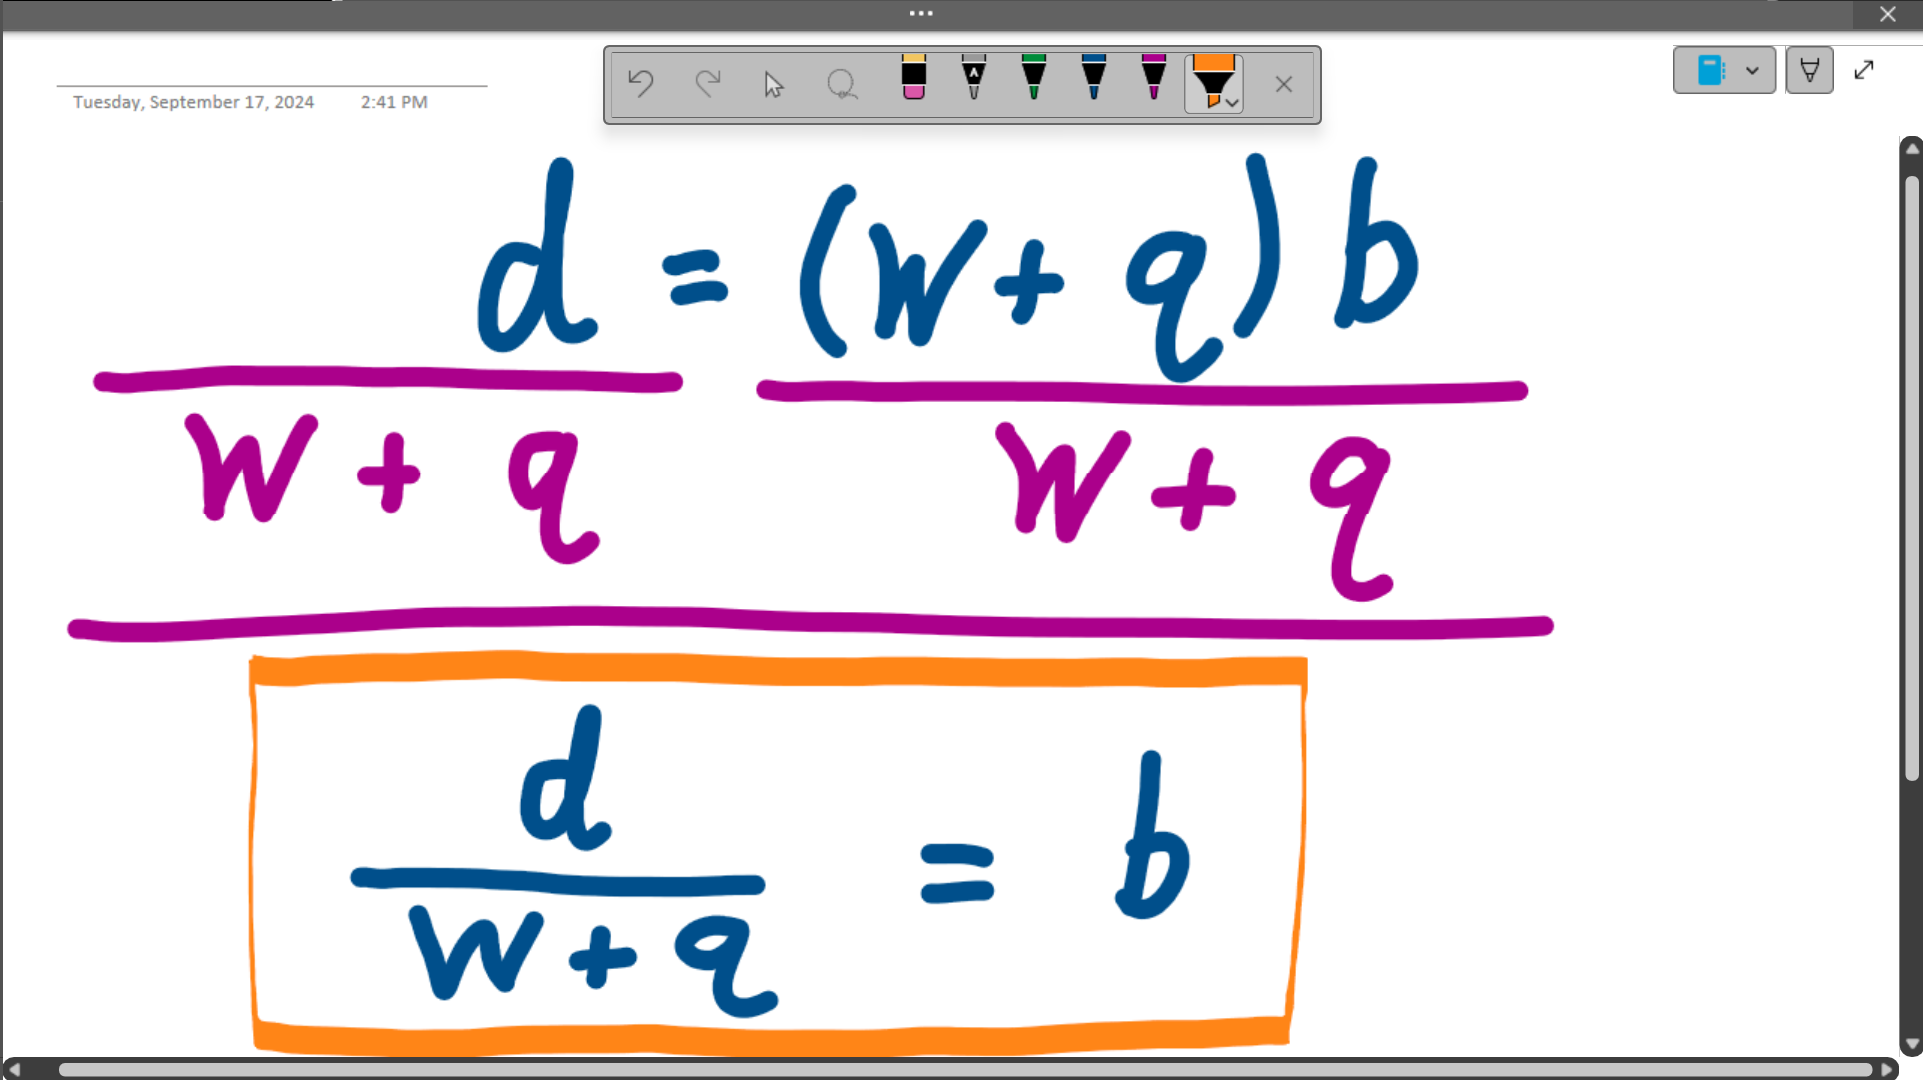 Tuesday, September 17, 2024 2:41 PM
d = (w + q) b
w + q w + q
d
w + q = b